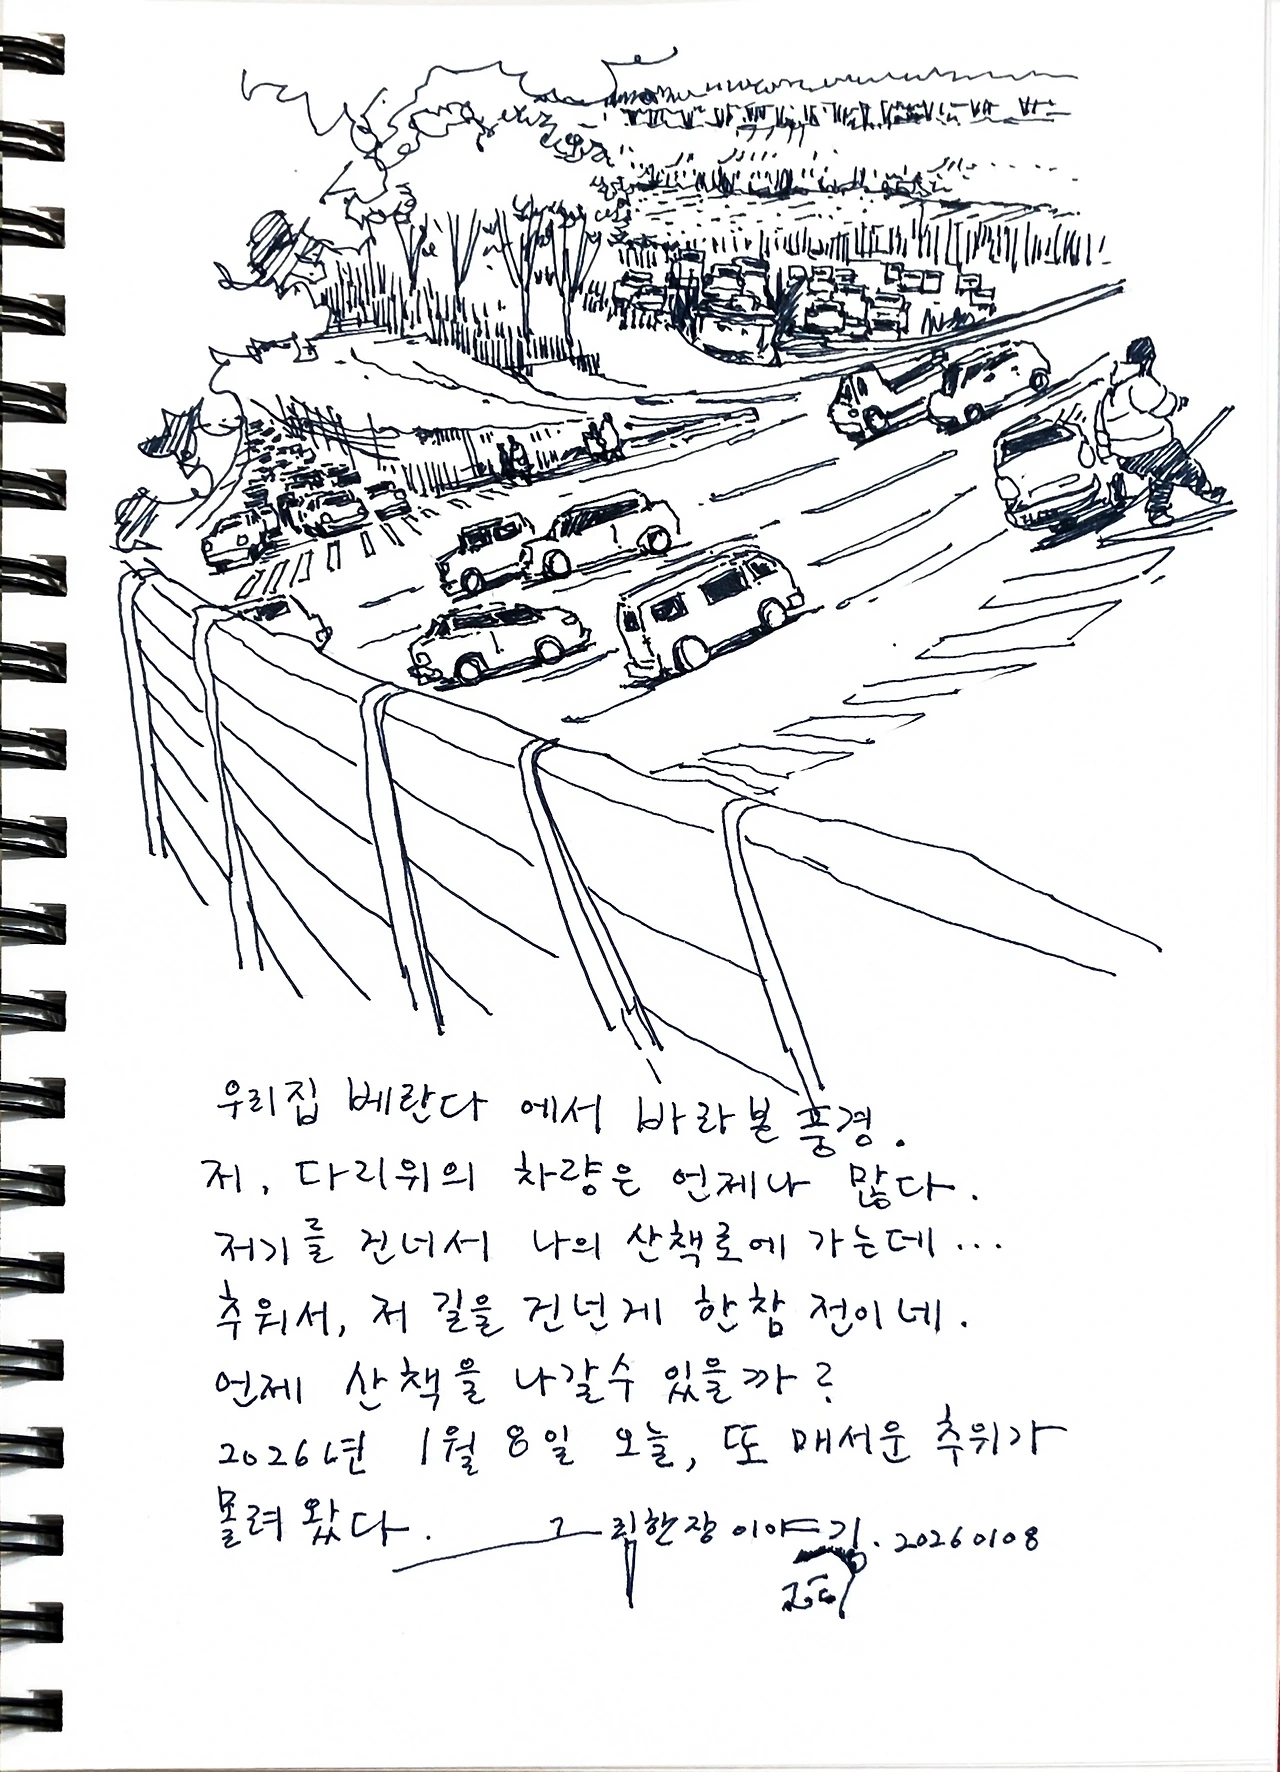 우리집 베란다 에서 바라본 풍경.
저, 다리위의 차량은 언제나 많다.
저기를 건너서 나의 산책로에 가는데...
추워서, 저 길을 건넌게 한참 전이네.
언제 산책을 나갈수 있을까?
2026년 1월 8일 오늘, 또 매서운 추위가
몰려 왔다. 그림한장 이야기. 20260108